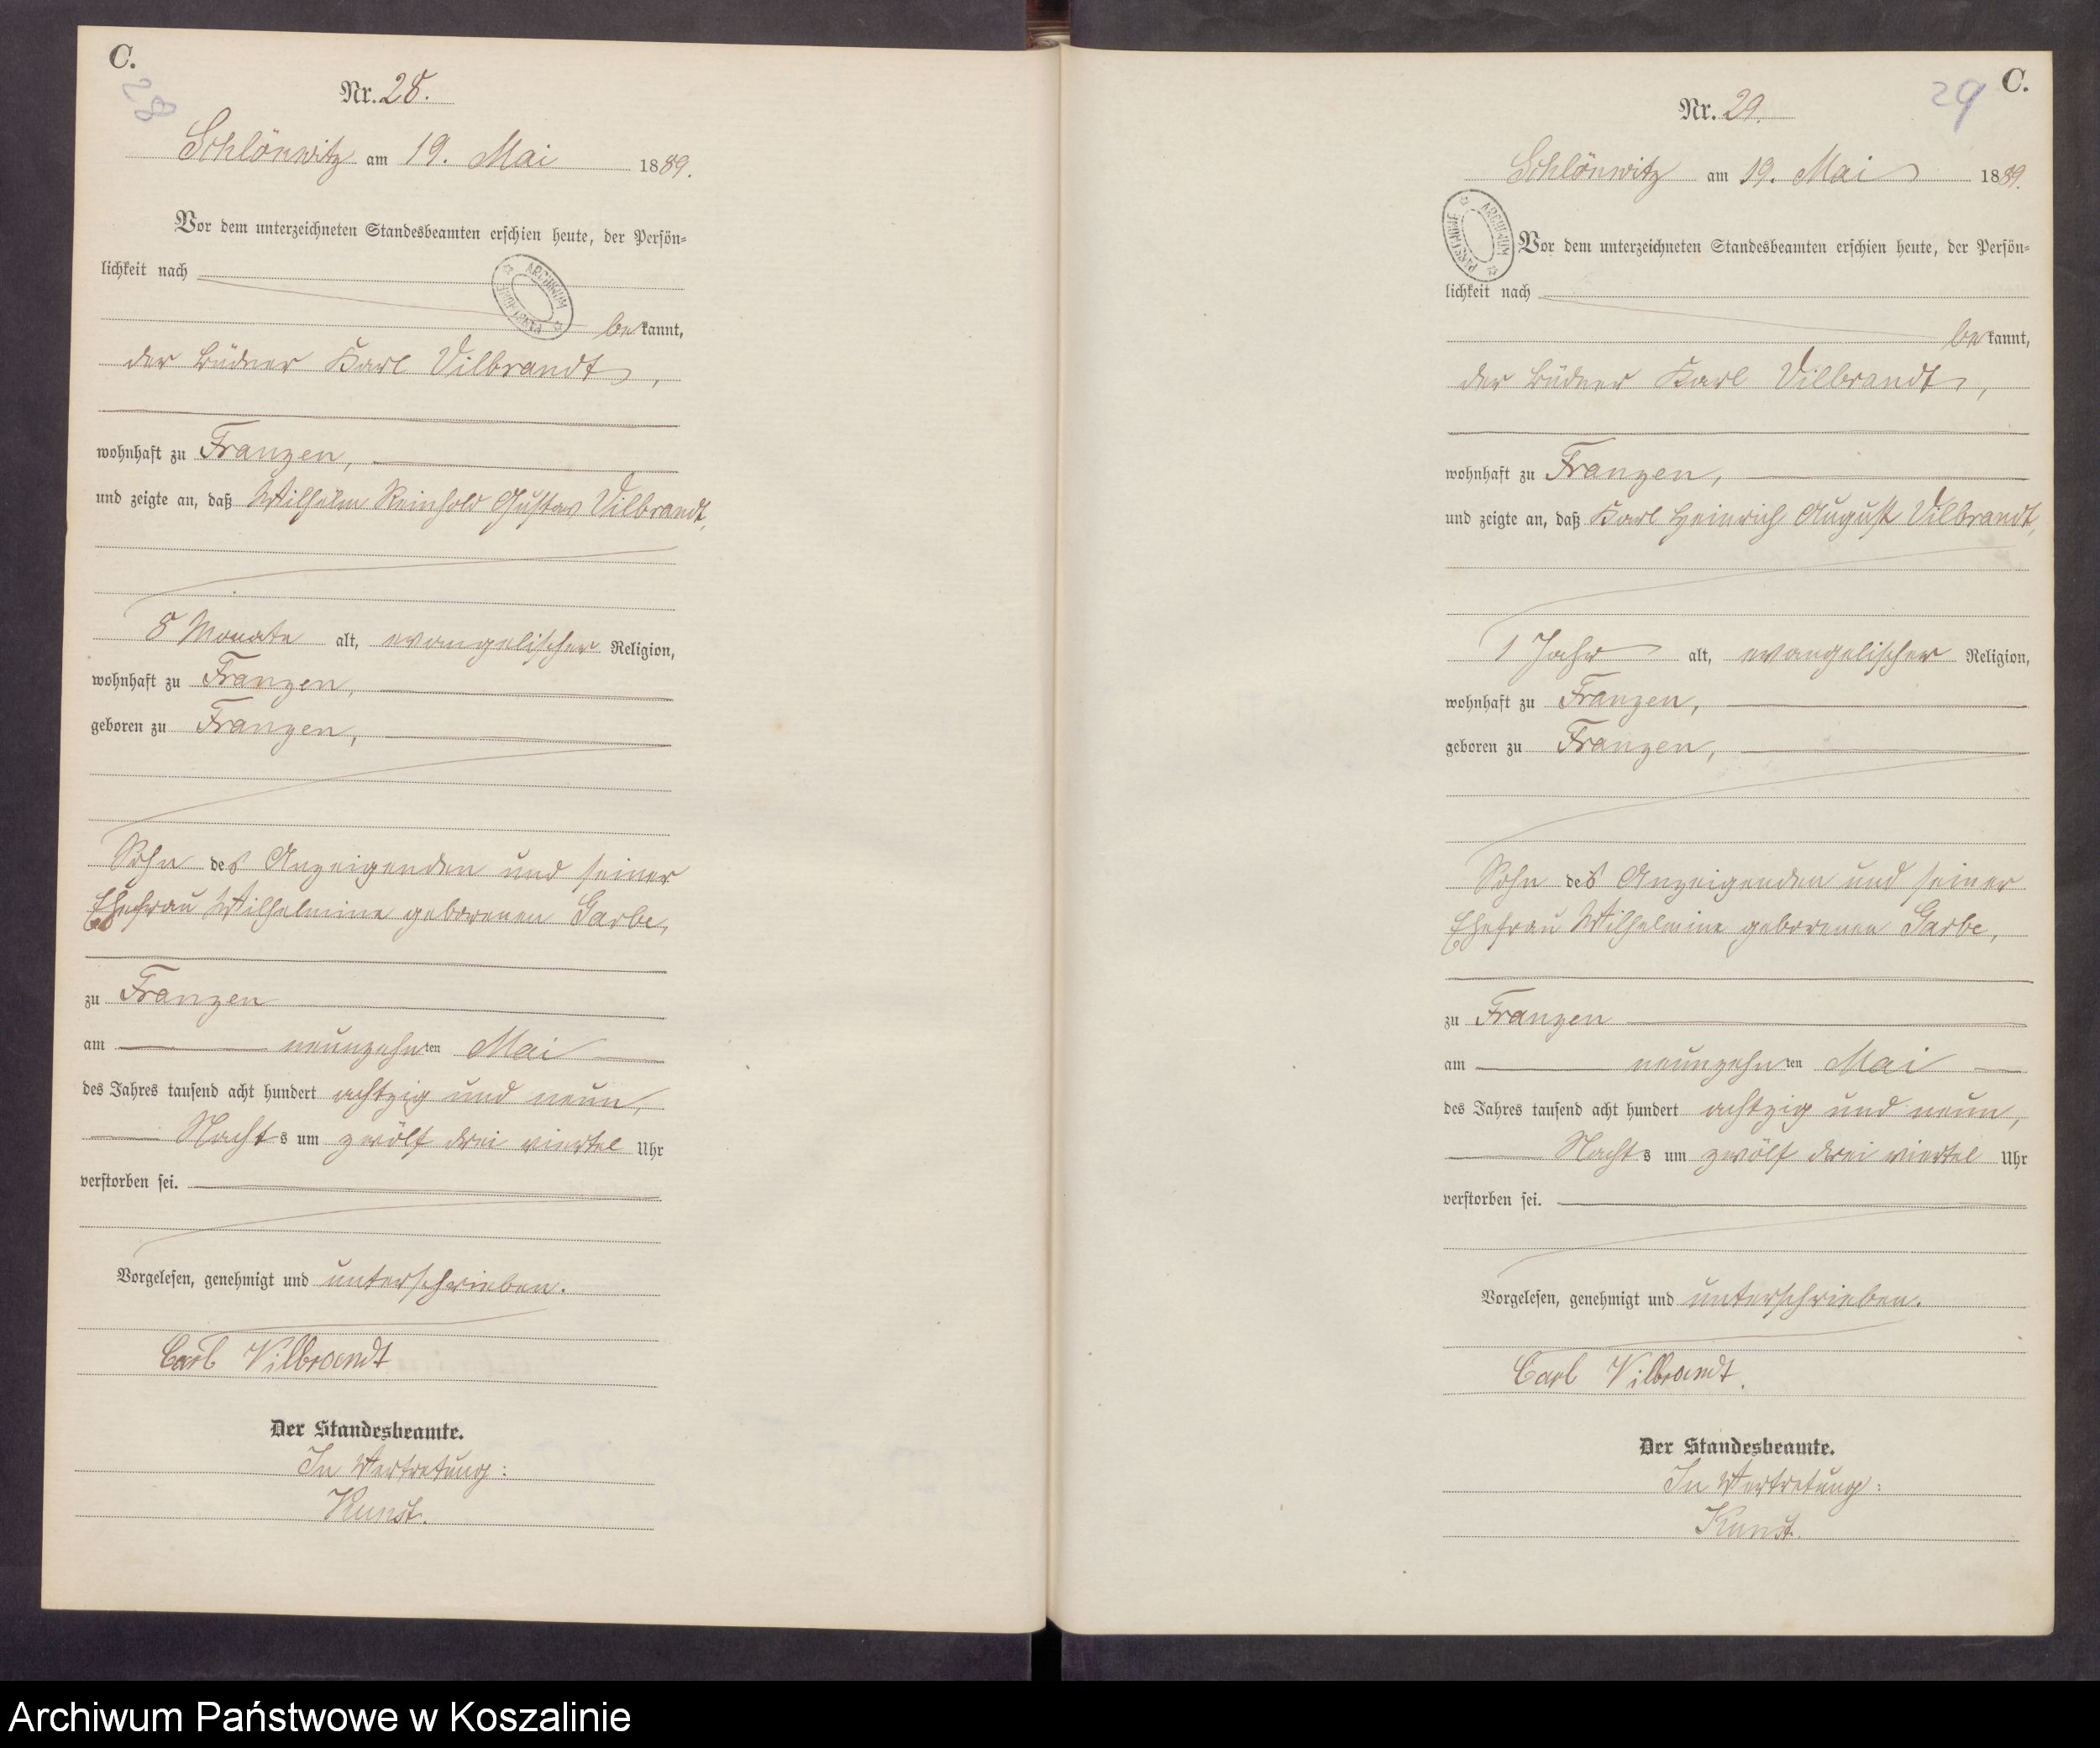 C.
28
Nr. 28.
Schlönwitz am 19. Mai 1889.
Vor dem unterzeichneten Standesbeamten erschien heute, der Persön-
lichkeit nach
ARCHIWUM PAŃSTWOWE
bekannt,
der Büdner Karl Vilbrandt,
wohnhaft zu Franzen,
und zeigte an, daß Wilhelm Reinhold Gustav Vilbrandt,
8 Monate alt, evangelischer Religion,
wohnhaft zu Franzen,
geboren zu Franzen,
Sohn des Anzeigenden und seiner
Ehefrau Wilhelmine geborenen Garbe,
zu Franzen
am neunzehnten Mai
des Jahres tausend acht hundert achtzig und neun,
Nachts um zwölf drei viertel Uhr
verstorben sei.
Vorgelesen, genehmigt und unterschrieben.
Carl Vilbrandt
Der Standesbeamte.
In Vertretung:
Kunst.
C.
29
Nr. 29.
Schlönwitz am 19. Mai 1889.
ARCHIWUM PAŃSTWOWE
Vor dem unterzeichneten Standesbeamten erschien heute, der Persön-
lichkeit nach
bekannt,
der Büdner Karl Vilbrandt,
wohnhaft zu Franzen,
und zeigte an, daß Karl Heinrich August Vilbrandt,
1 Jahr alt, evangelischer Religion,
wohnhaft zu Franzen,
geboren zu Franzen,
Sohn des Anzeigenden und seiner
Ehefrau Wilhelmine geborenen Garbe,
zu Franzen
am neunzehnten Mai
des Jahres tausend acht hundert achtzig und neun,
Nachts um zwölf drei viertel Uhr
verstorben sei.
Vorgelesen, genehmigt und unterschrieben.
Carl Vilbrandt.
Der Standesbeamte.
In Vertretung:
Kunst.
Archiwum Państwowe w Koszalinie